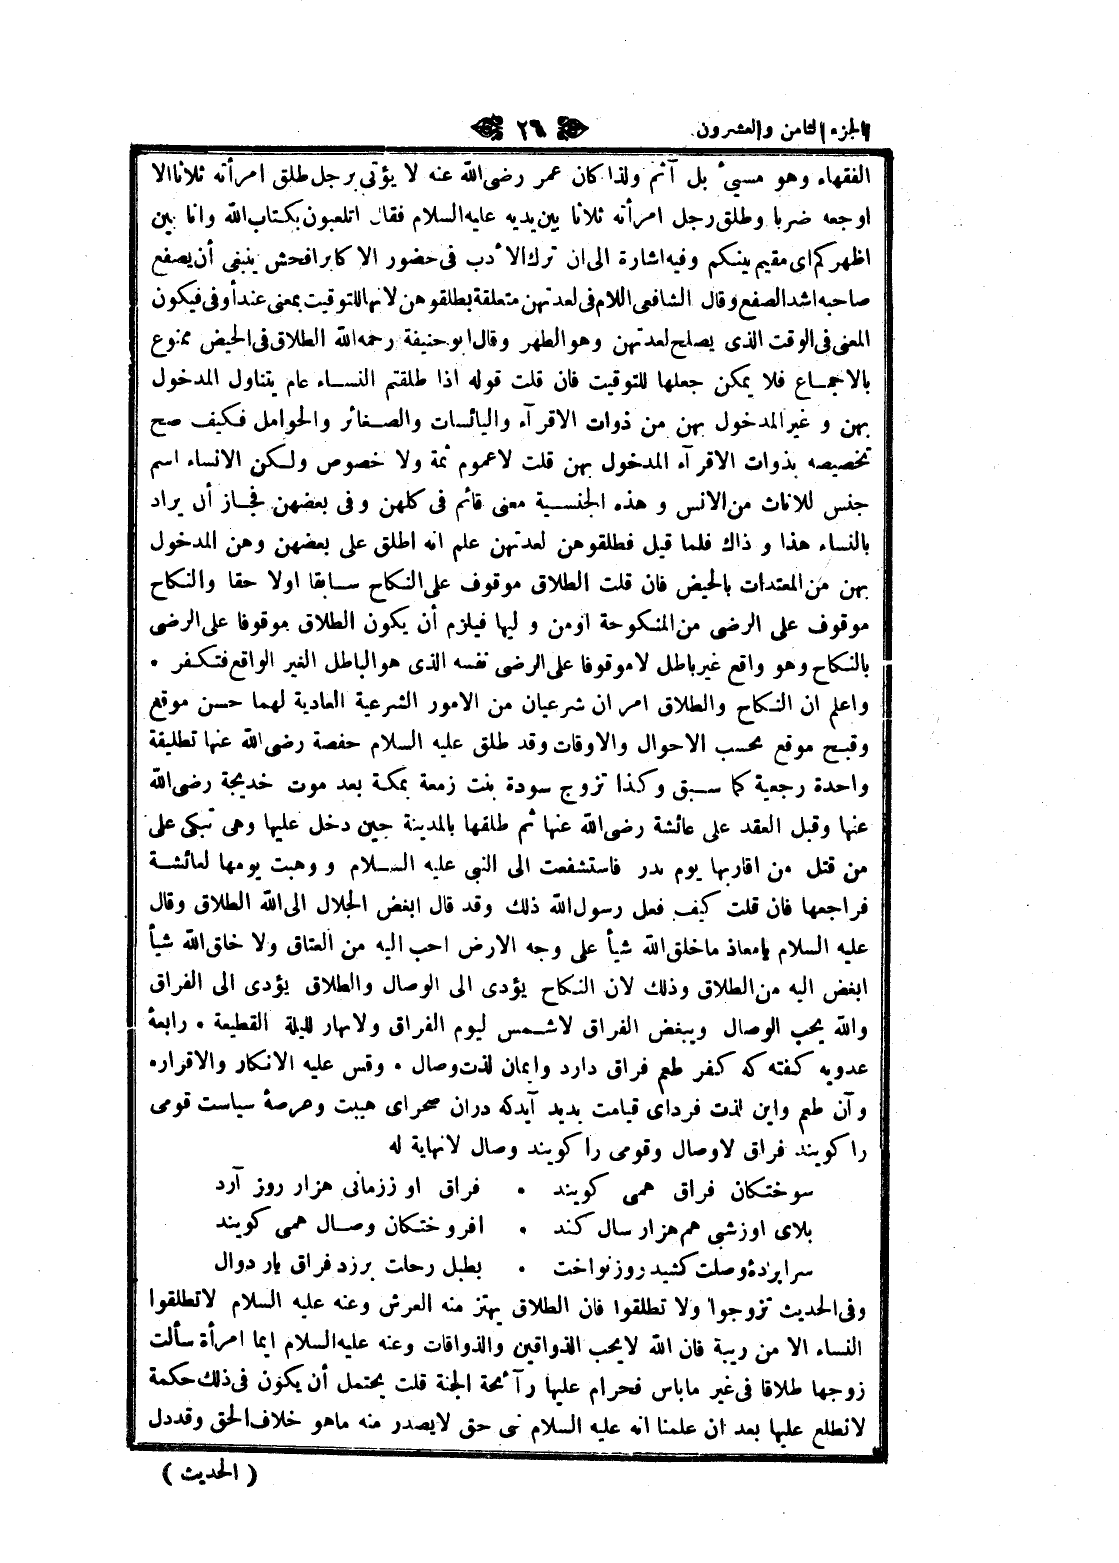 الجزء الثامن والعشرون
٢٦
الفقهاء وهو مسيئ بل آثم ولذا كان عمر رضى الله عنه لا يؤتى برجل طلق امرأته ثلاثا الا
اوجعه ضربا وطلق رجل امرأته ثلاثا بين يديه عليه السلام فقال اتلعبون بكتاب الله وانا بين
اظهركم اى مقيم بينكم وفيه اشارة الى ان ترك الأدب فى حضور الاكابر افحش ينبغى أن يصفع
صاحبه اشد الصفع وقال الشافعى اللام فى لعدتهن متعلقة بطلقوهن لانها للتوقيت بمعنى عند أو فى فيكون
المعنى فى الوقت الذى يصلح لعدتهن وهو الطهر وقال ابو حنيفة رحمه الله الطلاق فى الحيض ممنوع
بالاجماع فلا يمكن جعلها للتوقيت فان قلت قوله اذا طلقتم النساء عام يتناول المدخول
بهن و غير المدخول بهن من ذوات الاقرآء واليائسات والصغائر والحوامل فكيف صح
تخصيصه بذوات الاقرآء المدخول بهن قلت لا عموم ثمة ولا خصوص ولكن الانساء اسم
جنس للاناث من الانس و هذه الجنسية معنى قائم فى كلهن وفى بعضهن فجاز أن يراد
بالنساء هذا و ذاك فلما قيل فطلقوهن لعدتهن علم انه اطلق على بعضهن وهن المدخول
بهن من المعتدات بالحيض فان قلت الطلاق موقوف على النكاح سابقا اولا حقا والنكاح
موقوف على الرضى من المنكوحة اومن و ليها فيلزم أن يكون الطلاق موقوفا على الرضى
بالنكاح وهو واقع غير باطل لا موقوفا على الرضى نفسه الذى هو الباطل الغير الواقع فتكفر •
واعلم ان النكاح والطلاق امر ان شرعيان من الامور الشرعية العادية لهما حسن موقع
وقبح موقع بحسب الاحوال والاوقات وقد طلق عليه السلام حفصة رضى الله عنها تطليقة
واحدة رجعية كما سبق وكذا تزوج سودة بنت زمعة بمكة بعد موت خديجة رضى الله
عنها وقبل العقد على عائشة رضى الله عنها ثم طلقها بالمدينة حين دخل عليها وهى تبكى على
من قتل من اقاربها يوم بدر فاستشفعت الى النبى عليه السلام و وهبت يومها لعائشة
فراجعها فان قلت كيف فعل رسول الله ذلك وقد قال ابغض الحلال الى الله الطلاق وقال
عليه السلام يا معاذ ما خلق الله شيأ على وجه الارض احب اليه من العتاق ولا خلق الله شيأ
ابغض اليه من الطلاق وذلك لان النكاح يؤدى الى الوصال والطلاق يؤدى الى الفراق
والله يحب الوصال ويبغض الفراق لا شمس ليوم الفراق ولا نهار لليلة القطيعة • رابعۀ
عدويه كفته كه كفر طعم فراق دارد وايمان لذت وصال • وقس عليه الانكار والاقرار •
وآن طعم واين لذت فرداى قيامت بديد آيد كه دران صحراى هيبت وعرصۀ سياست قومى
را كويند فراق لا وصال وقومى را كويند وصال لا نهاية له
سوختكان فراق همى كويند • فراق او ززمانى هزار روز آرد
بلاى او زشبى هم هزار سال كند • افروختكان وصال همى كويند
سراپردۀ وصلت كشيد روز نواخت • بطبل رحلت برزد فراق يار دوال
وفى الحديث تزوجوا ولا تطلقوا فان الطلاق يهتز منه العرش وعنه عليه السلام لا تطلقوا
النساء الا من ريبة فان الله لا يحب الذواقين والذواقات وعنه عليه السلام ايما امرأة سألت
زوجها طلاقا فى غير ما باس فحرام عليها رآئحة الجنة قلت يحتمل أن يكون فى ذلك حكمة
لا نطلع عليها بعد ان علمنا انه عليه السلام نبى حق لا يصدر منه ما هو خلاف الحق وقد دل
( الحديث )